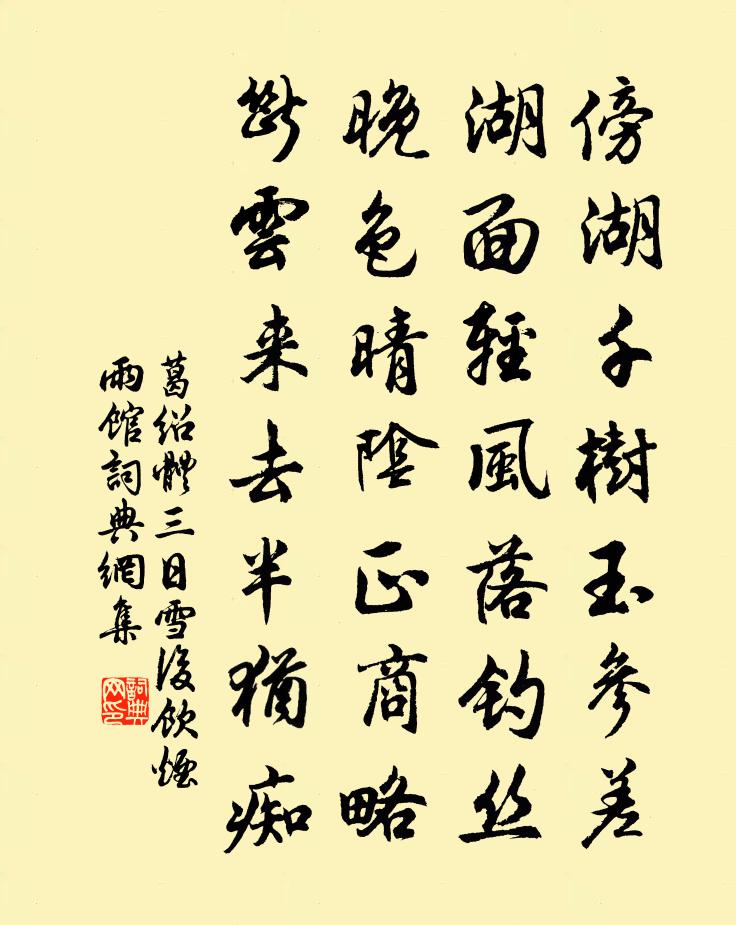 傍湖千樹玉參差
湖面輕風落釣丝
晚色晴陰正商略
斷雲来去半猶痴
葛绍體三日雪後飲煙
雨館詞典網集
詞典網印